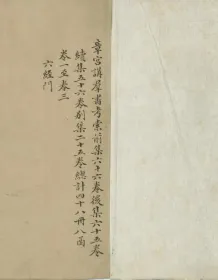 章宮講羣書考索前集六十六卷後集六十五卷
續集五十六卷別集二十五卷總計四十八冊八函
卷一至卷三
六經門